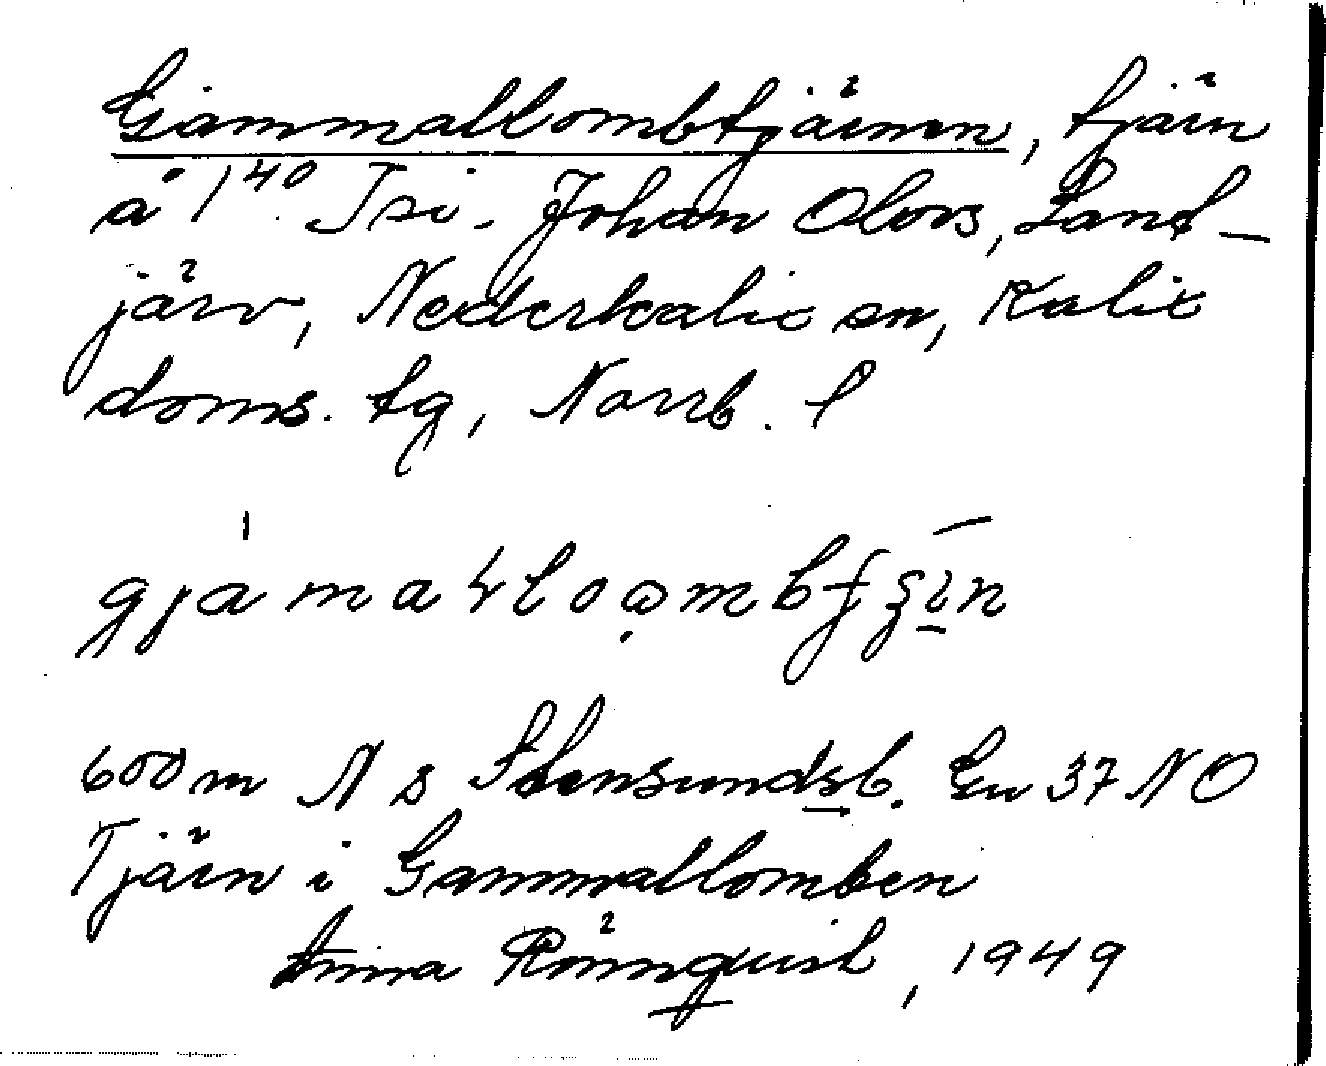 Gammallombtjärnen, tjärn
å 1⁴⁰ Isi. Johan Olovs, Land-
järv, Nederkalix sn, Kalix
doms. tg, Norrb. l
600 m N s Stensundsb. Gu 37 NO
Tjärn i Gammallomben
Anna Rönnquist, 1949